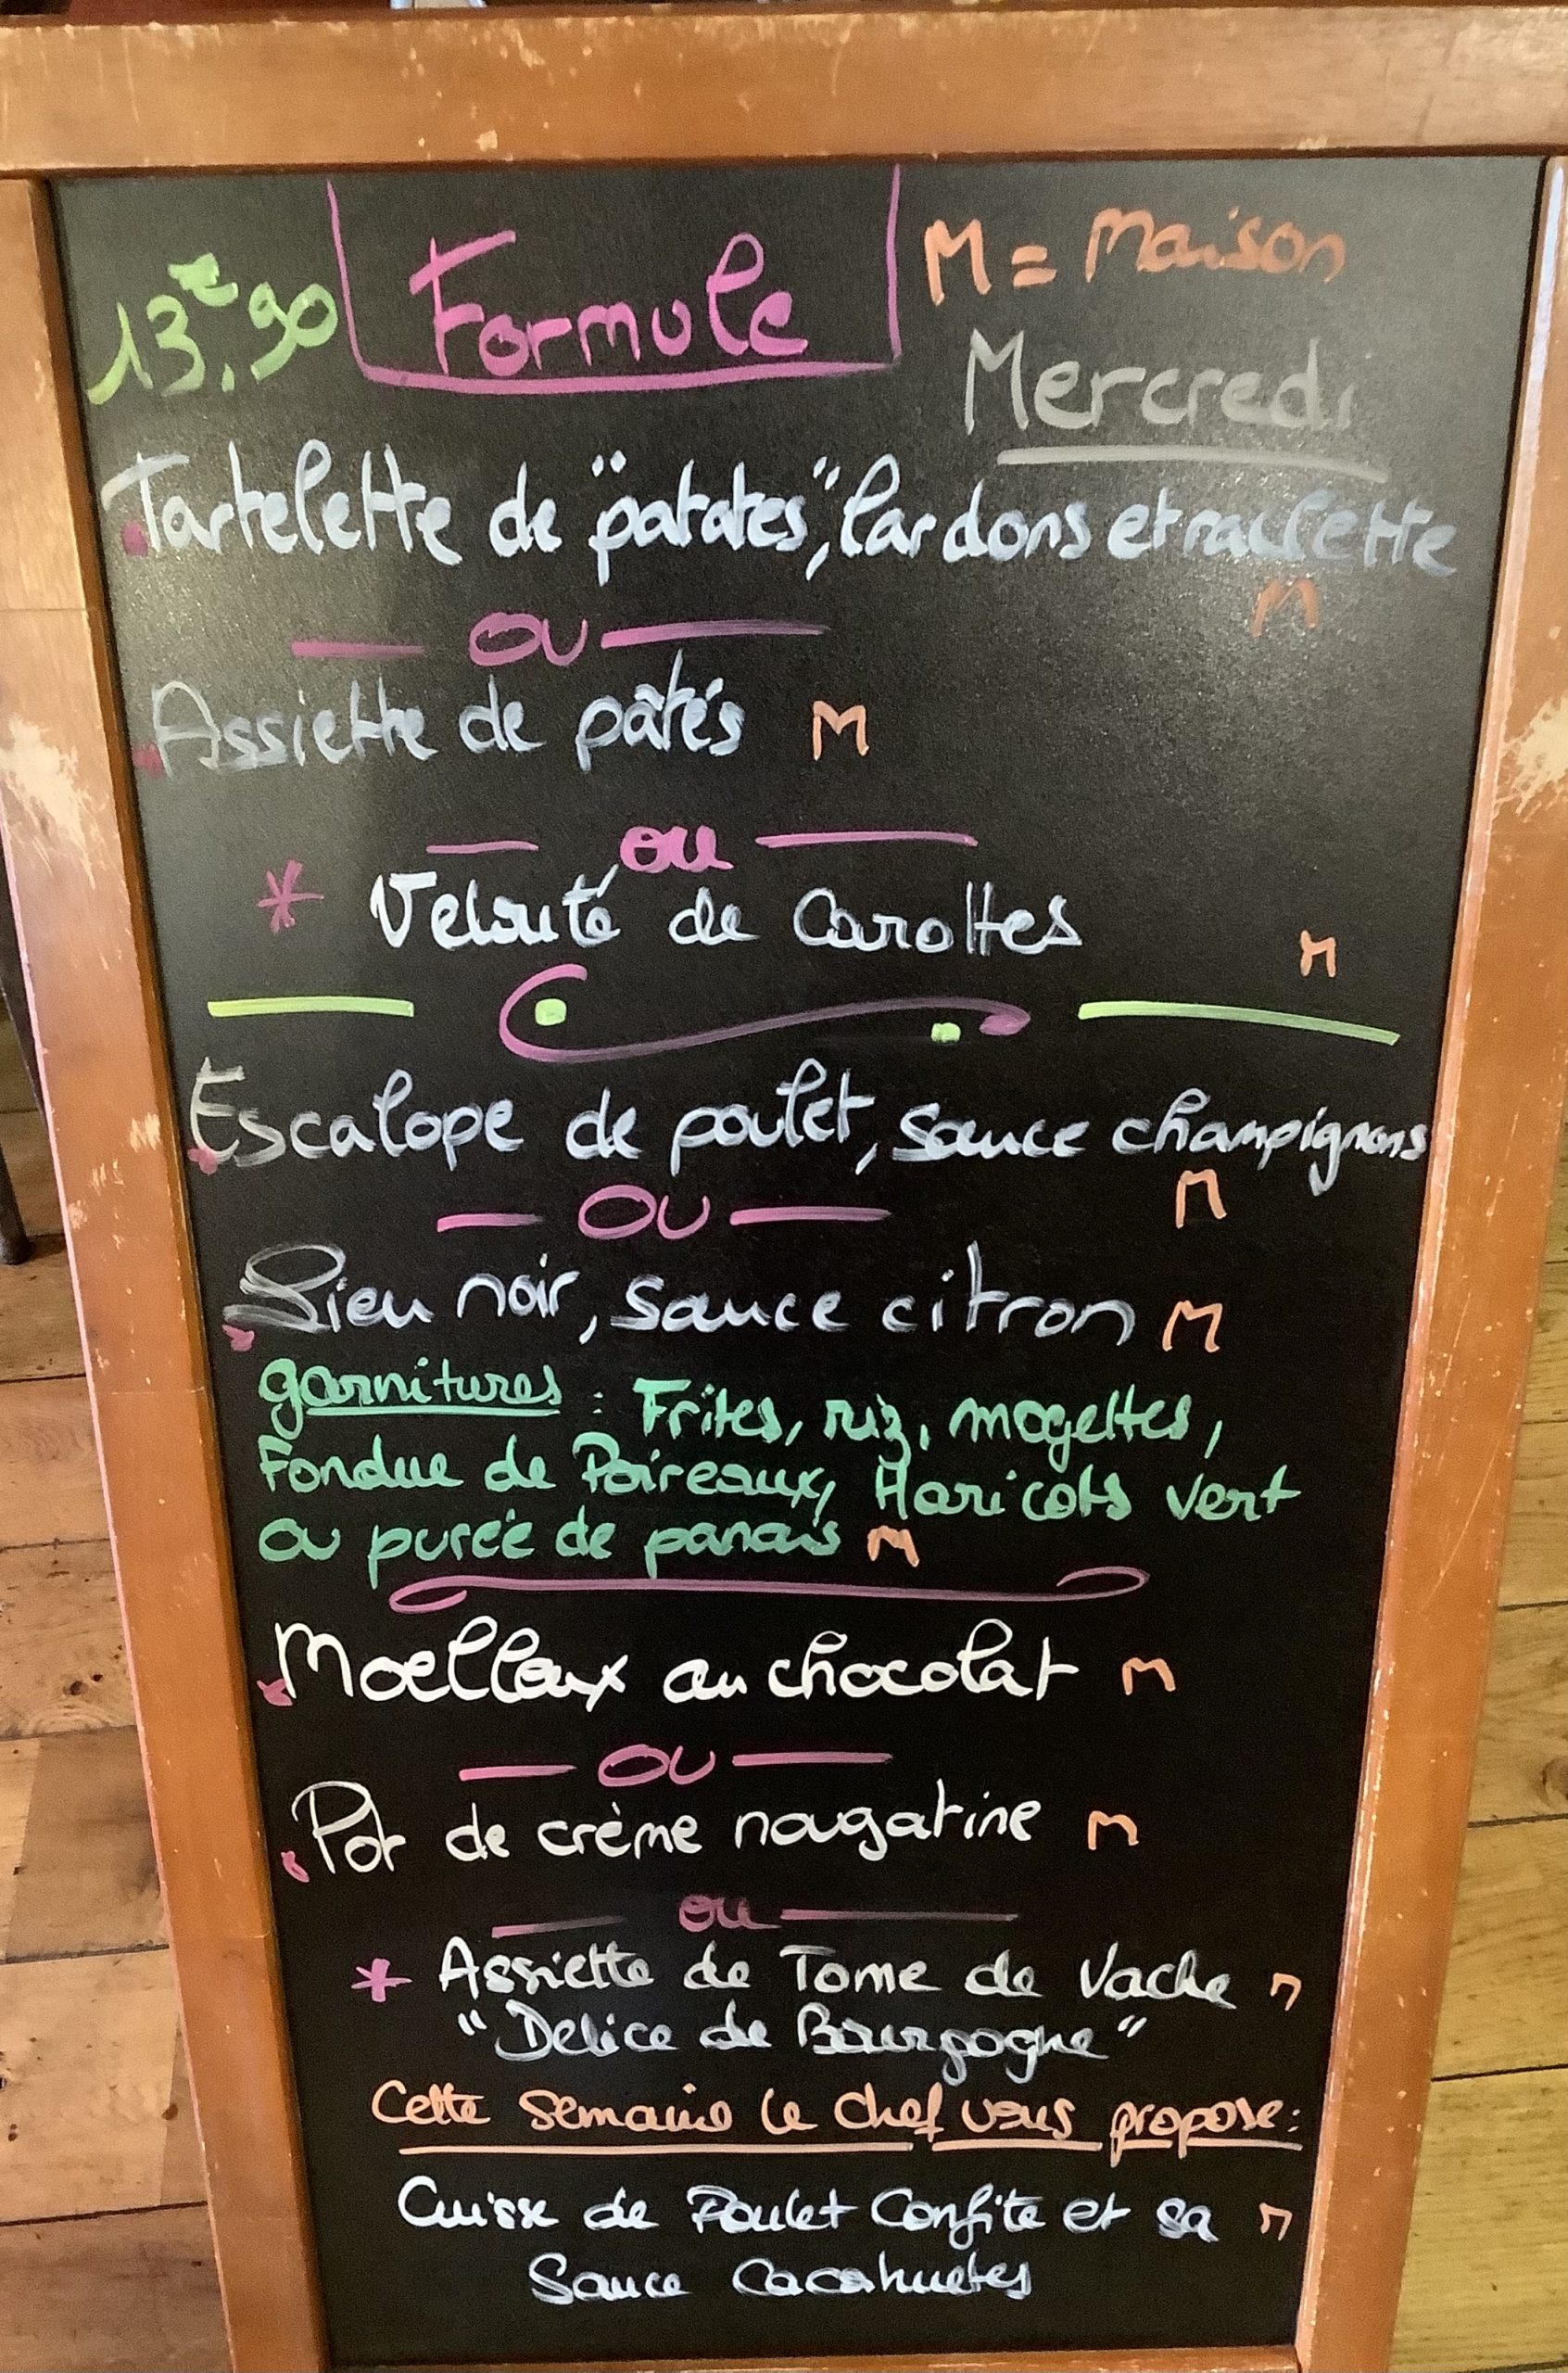 13,€90 Formule M = Maison
Mercredi
Tartelette de "patates", lardons et raclette
M
OU
Assiette de pâtés M
ou
* Velouté de Carottes M
Escalope de poulet, sauce champignons
M
OU
Lieu noir, sauce citron M
garnitures : Frites, riz, mogettes,
Fondue de Poireaux, Haricots vert
ou purée de panais M
Moelleux au chocolat M
OU
Pot de crème nougatine M
ou
* Assiette de Tome de Vache M
"Delice de Bourgogne"
Cette semaine le chef vous propose :
Cuisse de Poulet Confite et sa M
Sauce Cacahuetes